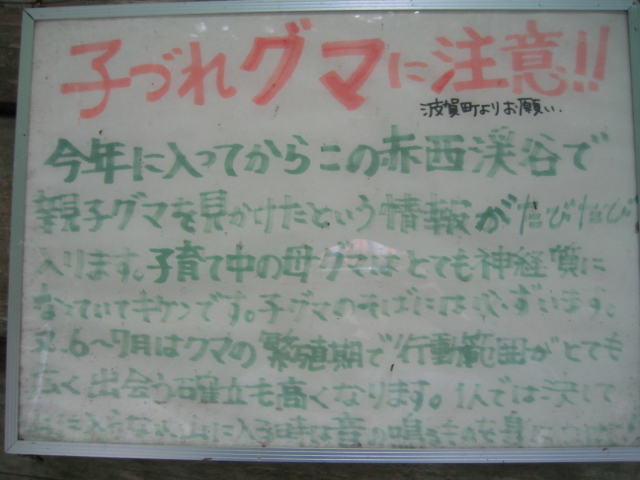 子づれグマに注意!!
波賀町よりお願い.
今年に入ってからこの赤西渓谷で
親子グマを見かけたという情報がたびたび
入ります。子育て中の母グマはとても神経質に
なっていてキケンです。子グマのそばには必ずいます。
又、6〜7月はクマの繁殖期で行動範囲がとても
広く出会う確立も高くなります。1人では決して
山に入らない 山に入る時は音の鳴るものを身に